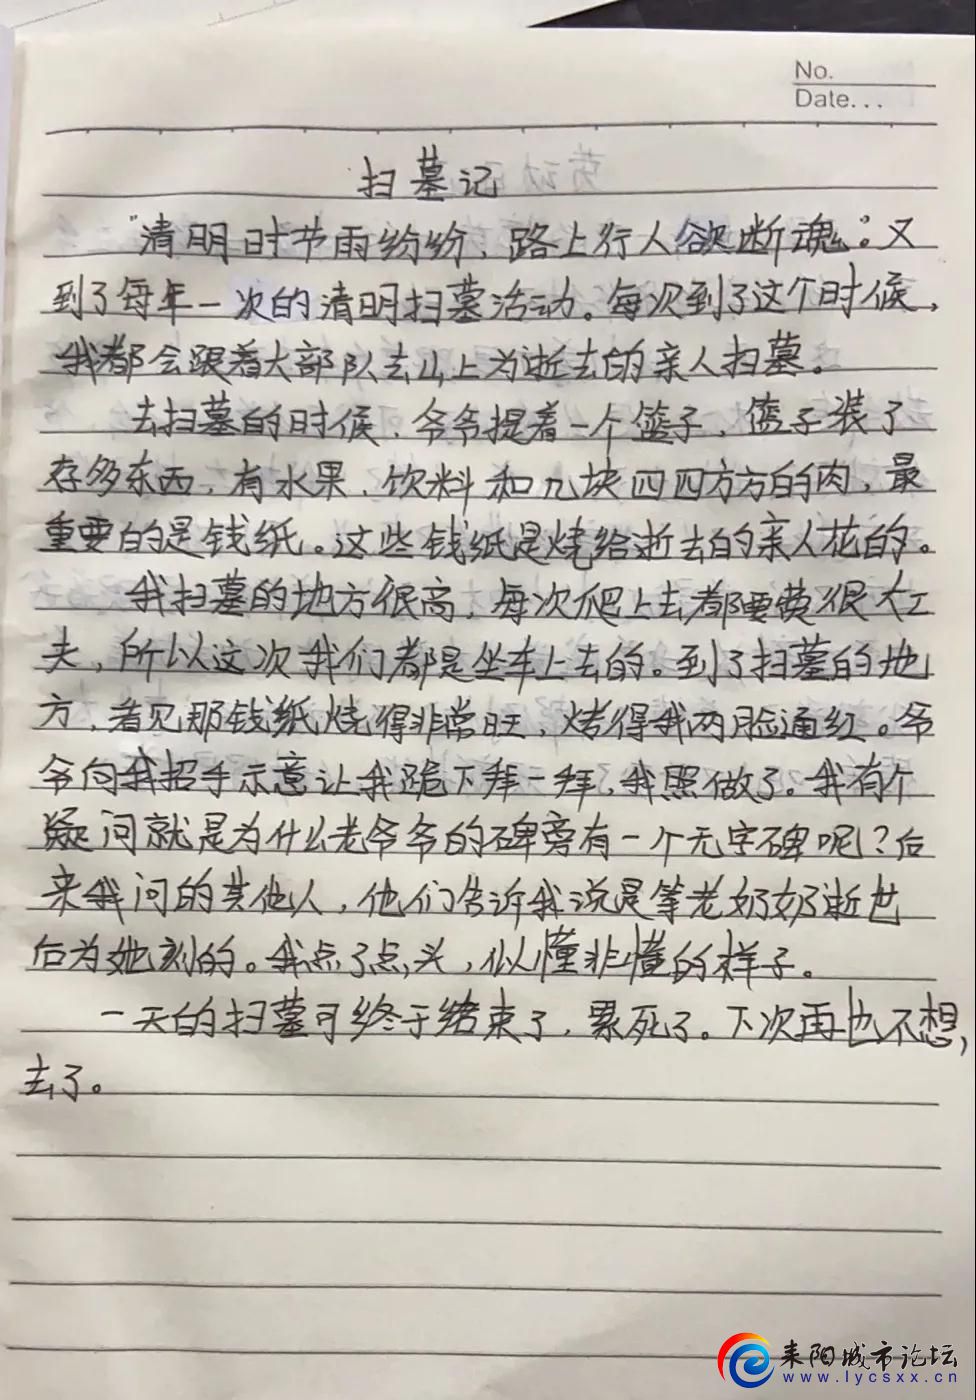 No.
Date...
扫墓记
"清明时节雨纷纷，路上行人欲断魂。"又
到了每年一次的清明扫墓活动。每次到了这个时候，
我都会跟着大部队去山上为逝去的亲人扫墓。
去扫墓的时候，爷爷提着一个篮子，篮子装了
存多东西，有水果、饮料和几块四四方方的肉，最
重要的是钱纸。这些钱纸是烧给逝去的亲人花的。
我扫墓的地方很高，每次爬上去都要费很大工
夫，所以这次我们都是坐车上去的。到了扫墓的地
方，看见那钱纸烧得非常旺，烤得我两脸通红。爷
爷向我招手示意让我跪下拜一拜，我照做了。我有个
疑问就是为什么老爷爷的碑旁有一个无字碑呢？后
来我问的其他人，他们告诉我说是等老奶奶逝世
后为她刻的。我点了点头，似懂非懂的样子。
一天的扫墓可终于结束了，累死了。下次再也不想，
去了。
耒阳城市论坛
www.lycsxx.cn